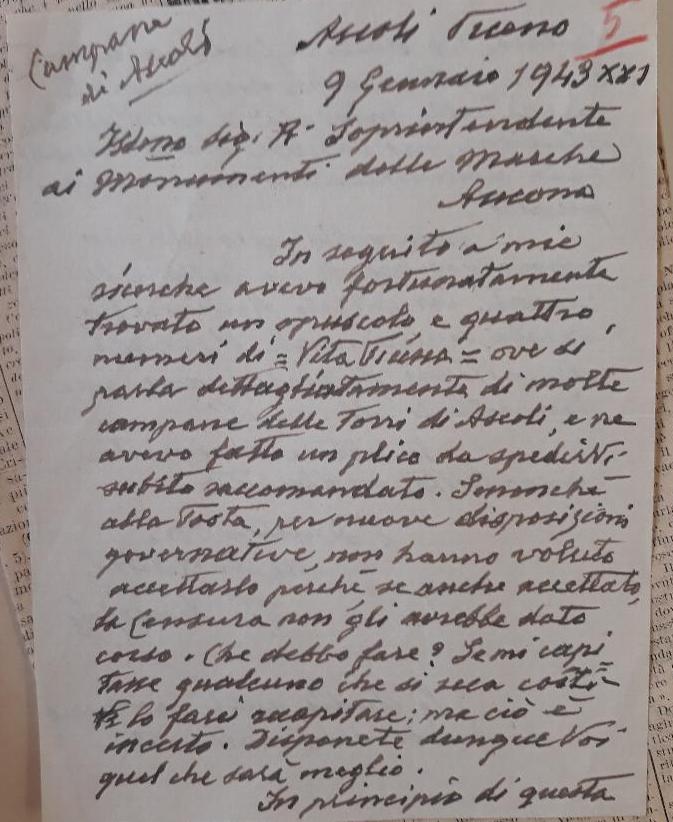 Campane
di Ascoli
5
Ascoli Piceno
9 Gennaio 1943 XXI
Ill.mo Sig. R. Soprintendente
ai Monumenti delle Marche
Ancona
In seguito a mie
ricerche avevo fortunatamente
trovato un opuscolo, e quattro
numeri di = Vita Picena = ove si
parla dettagliatamente di molte
campane delle Torri di Ascoli, e ne
avevo fatto un plico da spedirVi
subito raccomandato. Senonché
alla Posta, per nuove disposizioni
governative, non hanno voluto
accettarlo perché, se anche accettato,
la Censura non gli avrebbe dato
corso. Che debbo fare? Se mi capi=
tasse qualcuno che si reca costì
lo farei recapitare; ma ciò è
incerto. Disponete dunque Voi
quel che sarà meglio.
In principio di questa